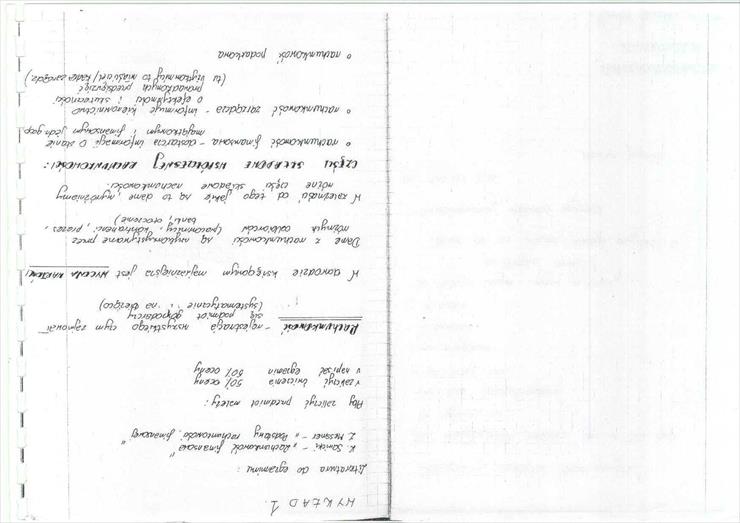 WYKŁAD 1.
Literatura do egzaminu:
K. Sawicki - „Rachunkowość finansowa"
Z. Messner - „Podstawy rachunkowości finansowej"
Aby zaliczyć przedmiot należy:
v zaliczyć ćwiczenia 50% oceny
v napisać egzamin 50% oceny
Rachunkowość - rejestracja wszystkiego czym zajmował
się podmiot gospodarczy
(systematycznie i na bieżąco)
W zawodzie księgowym najważniejsza jest WYCENA WARTOŚCI
Dane z rachunkowości są wykorzystywane przez
różnych odbiorców (pracownicy, kontrahenci, prezes,
banki, otoczenie)
W zależności od tego jakie są to dane, wyróżniamy
różne części składowe rachunkowości.
CZĘŚCI SKŁADOWE WSPÓŁCZESNEJ RACHUNKOWOŚCI:
o rachunkowość finansowa - dostarcza informacji o stanie
majątkowym i finansowym jedn. gosp.
o rachunkowość zarządcza - informuje kierownictwo
o efektywności i skuteczności
prowadzonych przedsięwzięć
(tu użytkownicy to właściciel/kadra zarządz.)
o rachunkowość podatkowa